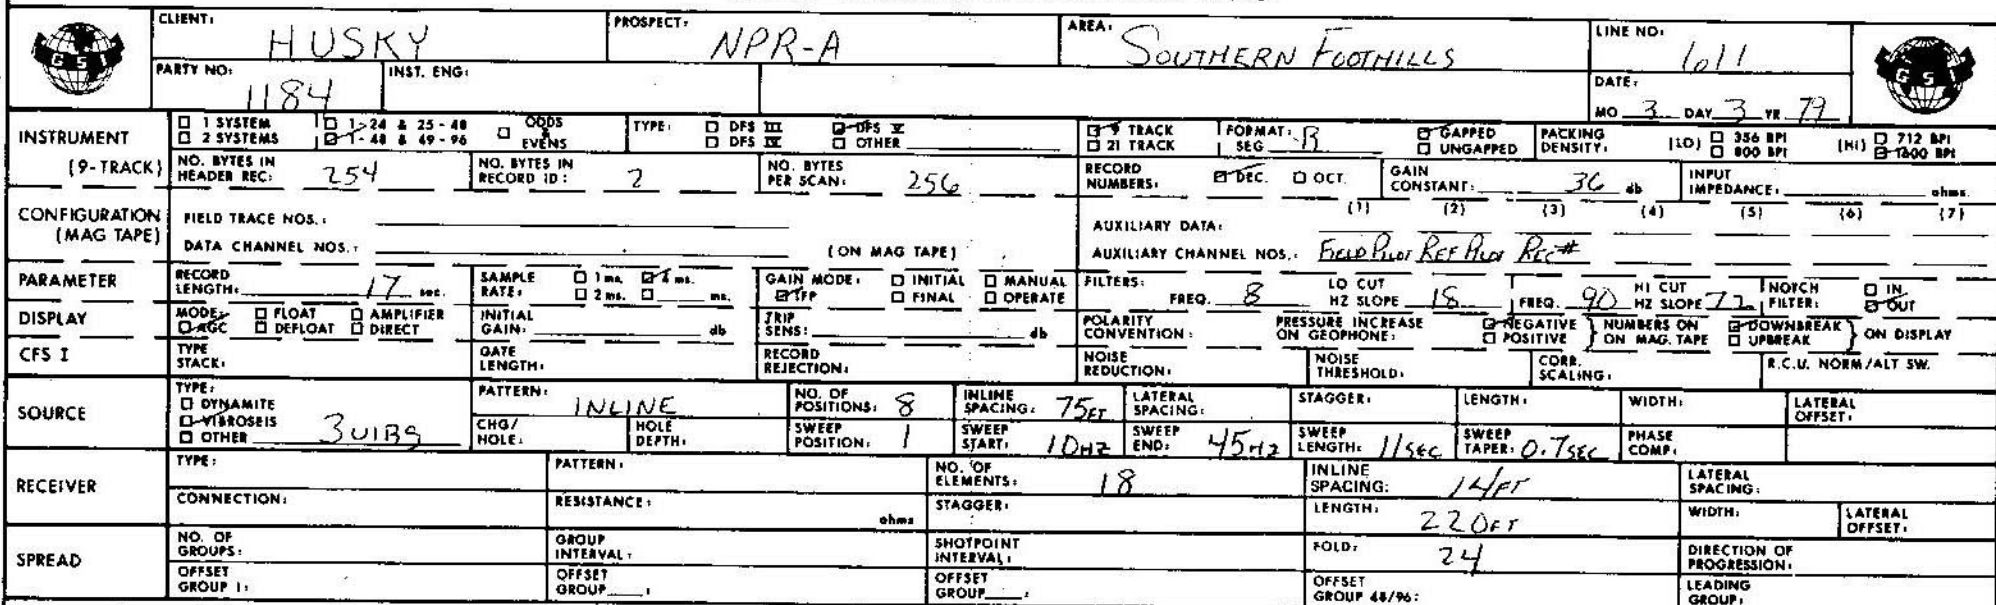 CLIENT: HUSKY PROSPECT: NPR-A AREA: SOUTHERN FOOTHILLS LINE NO: 611
GSI GSI
PARTY NO: 1184 INST. ENG: DATE:
MO 3 DAY 3 YR 79
INSTRUMENT (9-TRACK)
□ 1 SYSTEM □ 1-24 & 25-48 □ ODDS & EVENS TYPE: □ DFS III ☑ DFS V ☑ 9 TRACK FORMAT: SEG B ☑ GAPPED PACKING DENSITY: (LO) □ 356 BPI (HI) □ 712 BPI
□ 2 SYSTEMS ☑ 1-48 & 49-96 □ DFS IV □ OTHER □ 21 TRACK □ UNGAPPED □ 800 BPI ☑ 1600 BPI
NO. BYTES IN HEADER REC: 254 NO. BYTES IN RECORD ID: 2 NO. BYTES PER SCAN: 256 RECORD NUMBERS: ☑ DEC. □ OCT. GAIN CONSTANT: 36 db INPUT IMPEDANCE: ohms
CONFIGURATION (MAG TAPE)
(1) (2) (3) (4) (5) (6) (7)
FIELD TRACE NOS.: AUXILIARY DATA:
DATA CHANNEL NOS.: (ON MAG TAPE) AUXILIARY CHANNEL NOS. FIELD PILOT REF PILOT REC#
PARAMETER RECORD LENGTH: 17 sec. SAMPLE RATE: □ 1 ms. ☑ 4 ms. □ 2 ms. □ ms. GAIN MODE: □ INITIAL □ MANUAL ☑ IFP □ FINAL □ OPERATE FILTERS: FREQ. 8 LO CUT HZ SLOPE 18 FREQ. 90 HI CUT HZ SLOPE 72 NOTCH FILTER: □ IN ☑ OUT
DISPLAY MODE: □ FLOAT □ AMPLIFIER ☑ AGC □ DEFLOAT □ DIRECT INITIAL GAIN: db TRIP SENS: db POLARITY CONVENTION: PRESSURE INCREASE ON GEOPHONE: ☑ NEGATIVE □ POSITIVE } NUMBERS ON ON MAG. TAPE ☑ DOWNBREAK □ UPBREAK } ON DISPLAY
CFS I TYPE STACK: GATE LENGTH: RECORD REJECTION: NOISE REDUCTION: NOISE THRESHOLD: CORR. SCALING: R.C.U. NORM/ALT SW.
SOURCE TYPE: □ DYNAMITE ☑ VIBROSEIS □ OTHER 3 VIBS
PATTERN: INLINE NO. OF POSITIONS: 8 INLINE SPACING: 75FT LATERAL SPACING: STAGGER: LENGTH: WIDTH: LATERAL OFFSET:
CHG/HOLE: HOLE DEPTH: SWEEP POSITION: 1 SWEEP START: 10HZ SWEEP END: 45HZ SWEEP LENGTH: 11SEC SWEEP TAPER: 0.7SEC PHASE COMP:
RECEIVER TYPE: PATTERN: NO. OF ELEMENTS: 18 INLINE SPACING: 14FT LATERAL SPACING:
CONNECTION: RESISTANCE: ohms STAGGER: LENGTH: 220FT WIDTH: LATERAL OFFSET:
SPREAD NO. OF GROUPS: GROUP INTERVAL: SHOTPOINT INTERVAL: FOLD: 24 DIRECTION OF PROGRESSION:
OFFSET GROUP 1: OFFSET GROUP : OFFSET GROUP : OFFSET GROUP 48/96: LEADING GROUP: